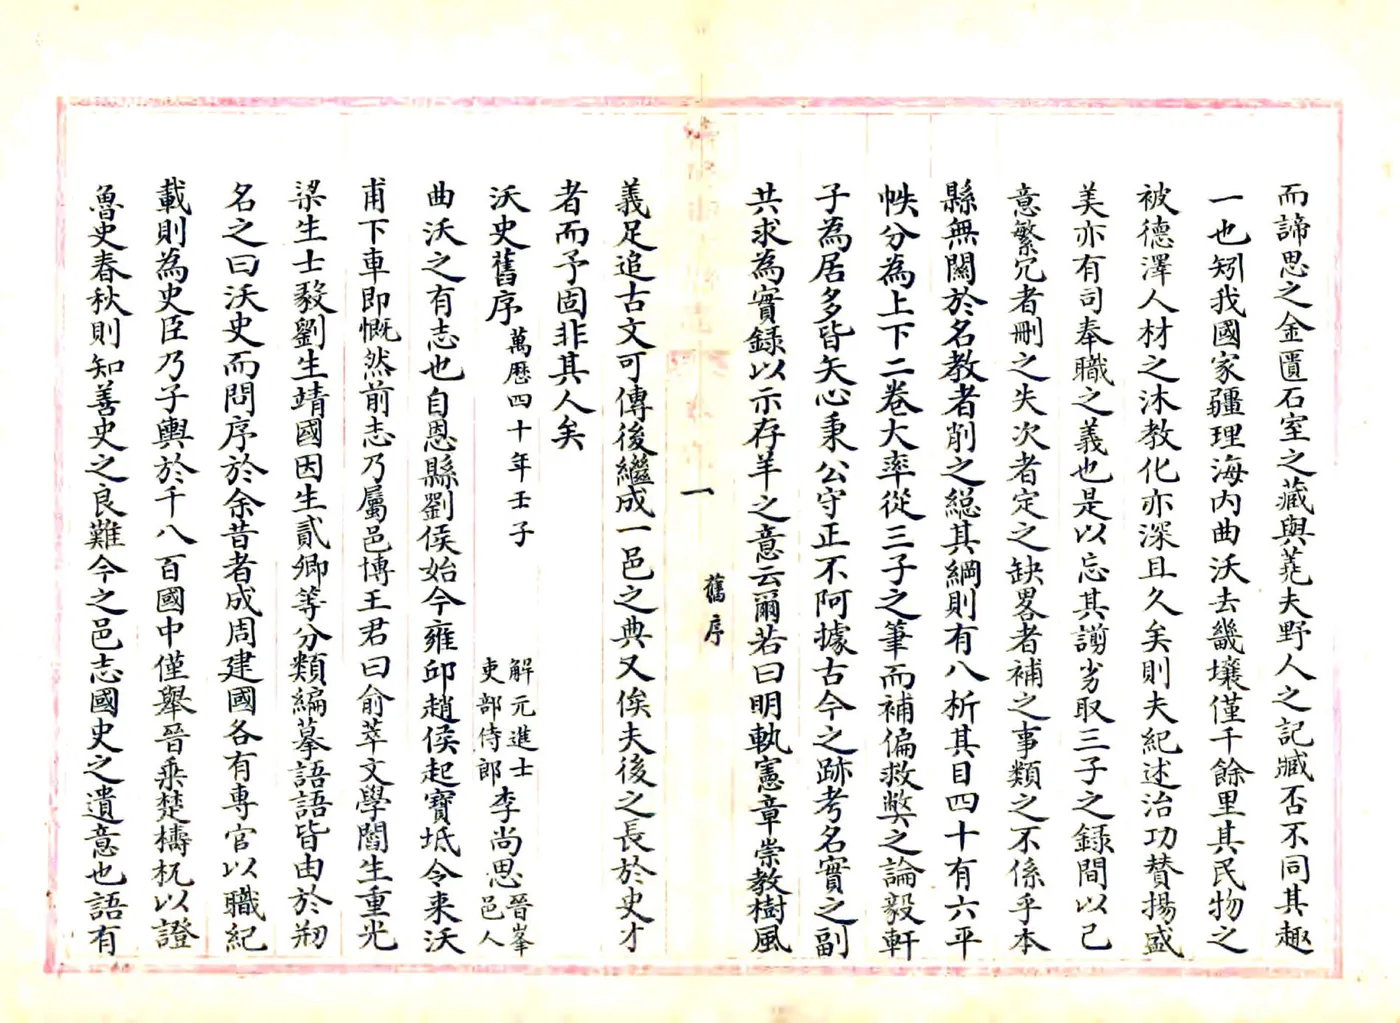 而諦思之金匱石室之藏與蕘夫野人之記臧否不同其趣
一也矧我國家疆理海內曲沃去畿壤僅千餘里其民物之
被德澤人材之沐教化亦深且久矣則夫紀述治功賛揚盛
美亦有司奉職之義也是以忘其謭劣取三子之錄間以己
意繁冗者刪之失次者定之缺畧者補之事類之不係乎本
縣無關於名教者削之緫其綱則有八析其目四十有六平
帙分為上下二卷大率從三子之筆而補偏救弊之論毅軒
子為居多皆矢心秉公守正不阿據古今之跡考名實之副
共求為實錄以示存羊之意云爾若曰明執憲章崇教樹風
一
舊序
義足追古文可傳後繼成一邑之典又俟夫後之長於史才
者而予固非其人矣
沃史舊序 萬歷四十年壬子 解元進士吏部侍郎李尚思晉峯邑人
曲沃之有志也自恩縣劉侯始今雍邱趙侯起寶坻令来沃
甫下車即慨然前志乃屬邑博王君曰俞萃文學閻生重光
梁生士毅劉生靖國因生貳卿等分類編摹語語皆由於剏
名之曰沃史而問序於余昔者成周建國各有専官以職紀
載則為史臣乃子輿於千八百國中僅舉晉乗楚檮杌以證
魯史春秋則知善史之良難今之邑志國史之遺意也語有